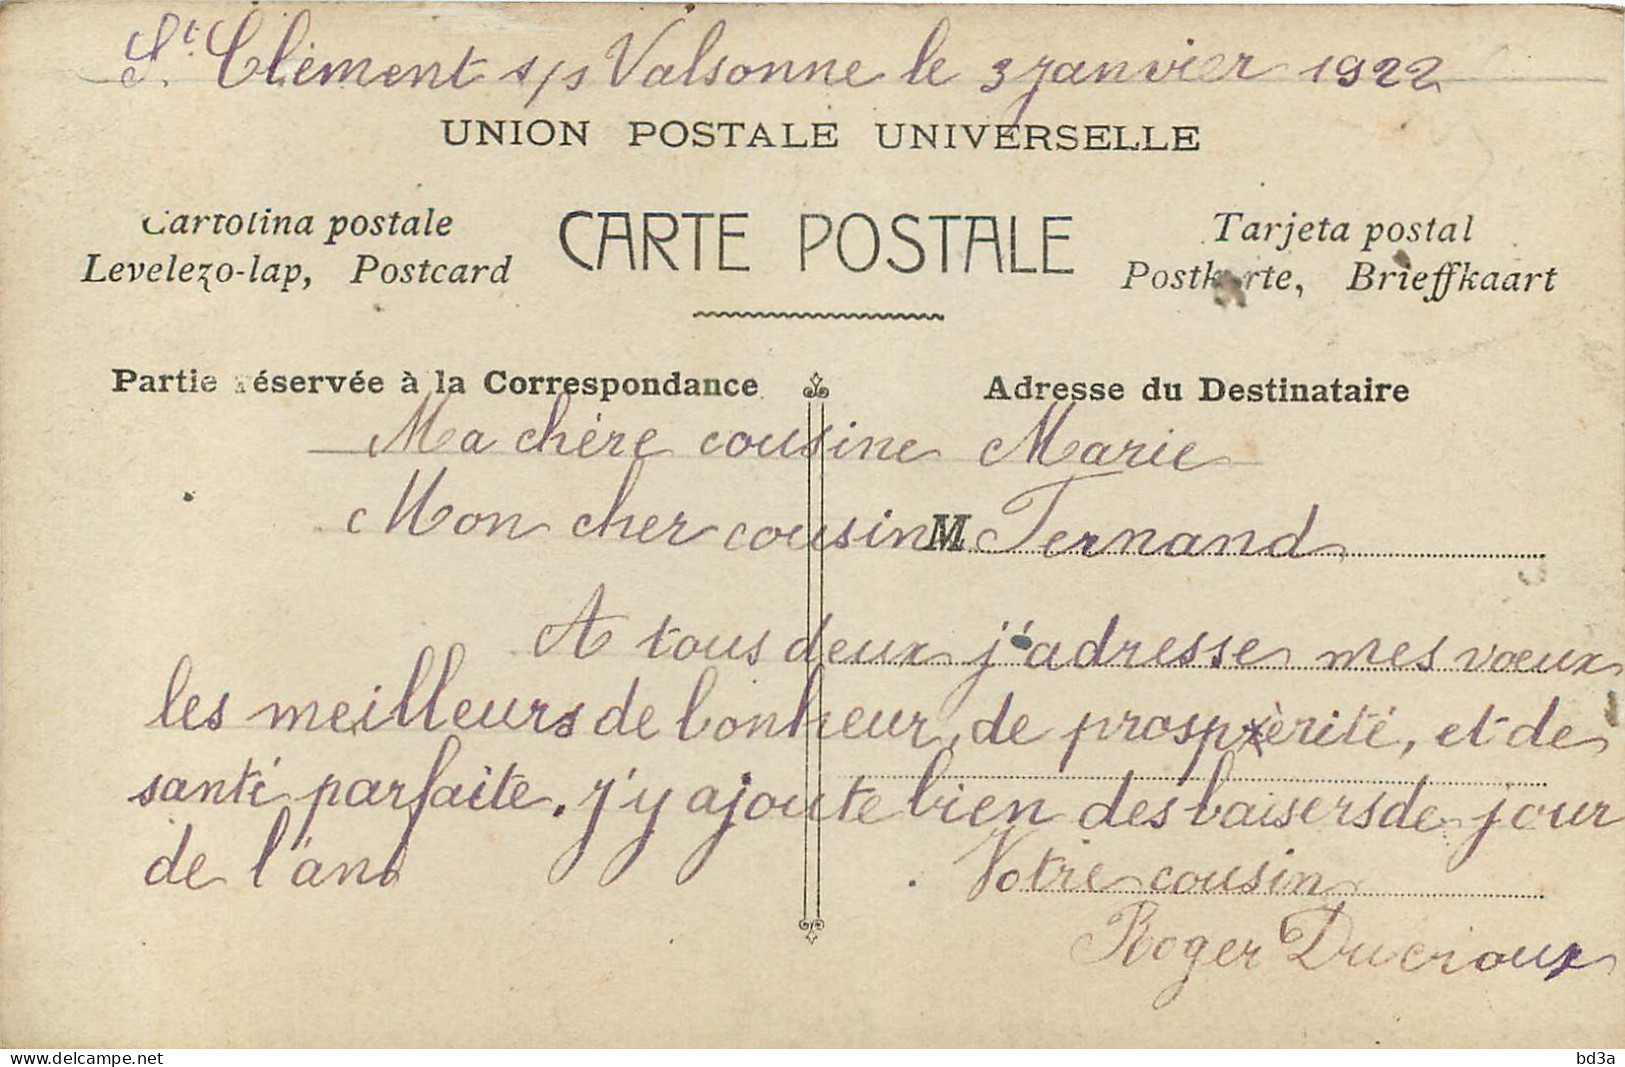 St. Clément s/s Valsonne le 3 janvier 1922
UNION POSTALE UNIVERSELLE
Cartolina postale
Levelezo-lap, Postcard
CARTE POSTALE
Tarjeta postal
Postkarte, Brieffkaart
Partie réservée à la Correspondance
Adresse du Destinataire
Ma chère cousine Marie
Mon cher cousin M Fernand
A tous deux j'adresse mes vœux
les meilleurs de bonheur, de prospèrité, et de
santé parfaite. j'y ajoute bien des baisers de jour
de l'an
Votre cousin
Roger Ducroux
delcampe.net
bd3a